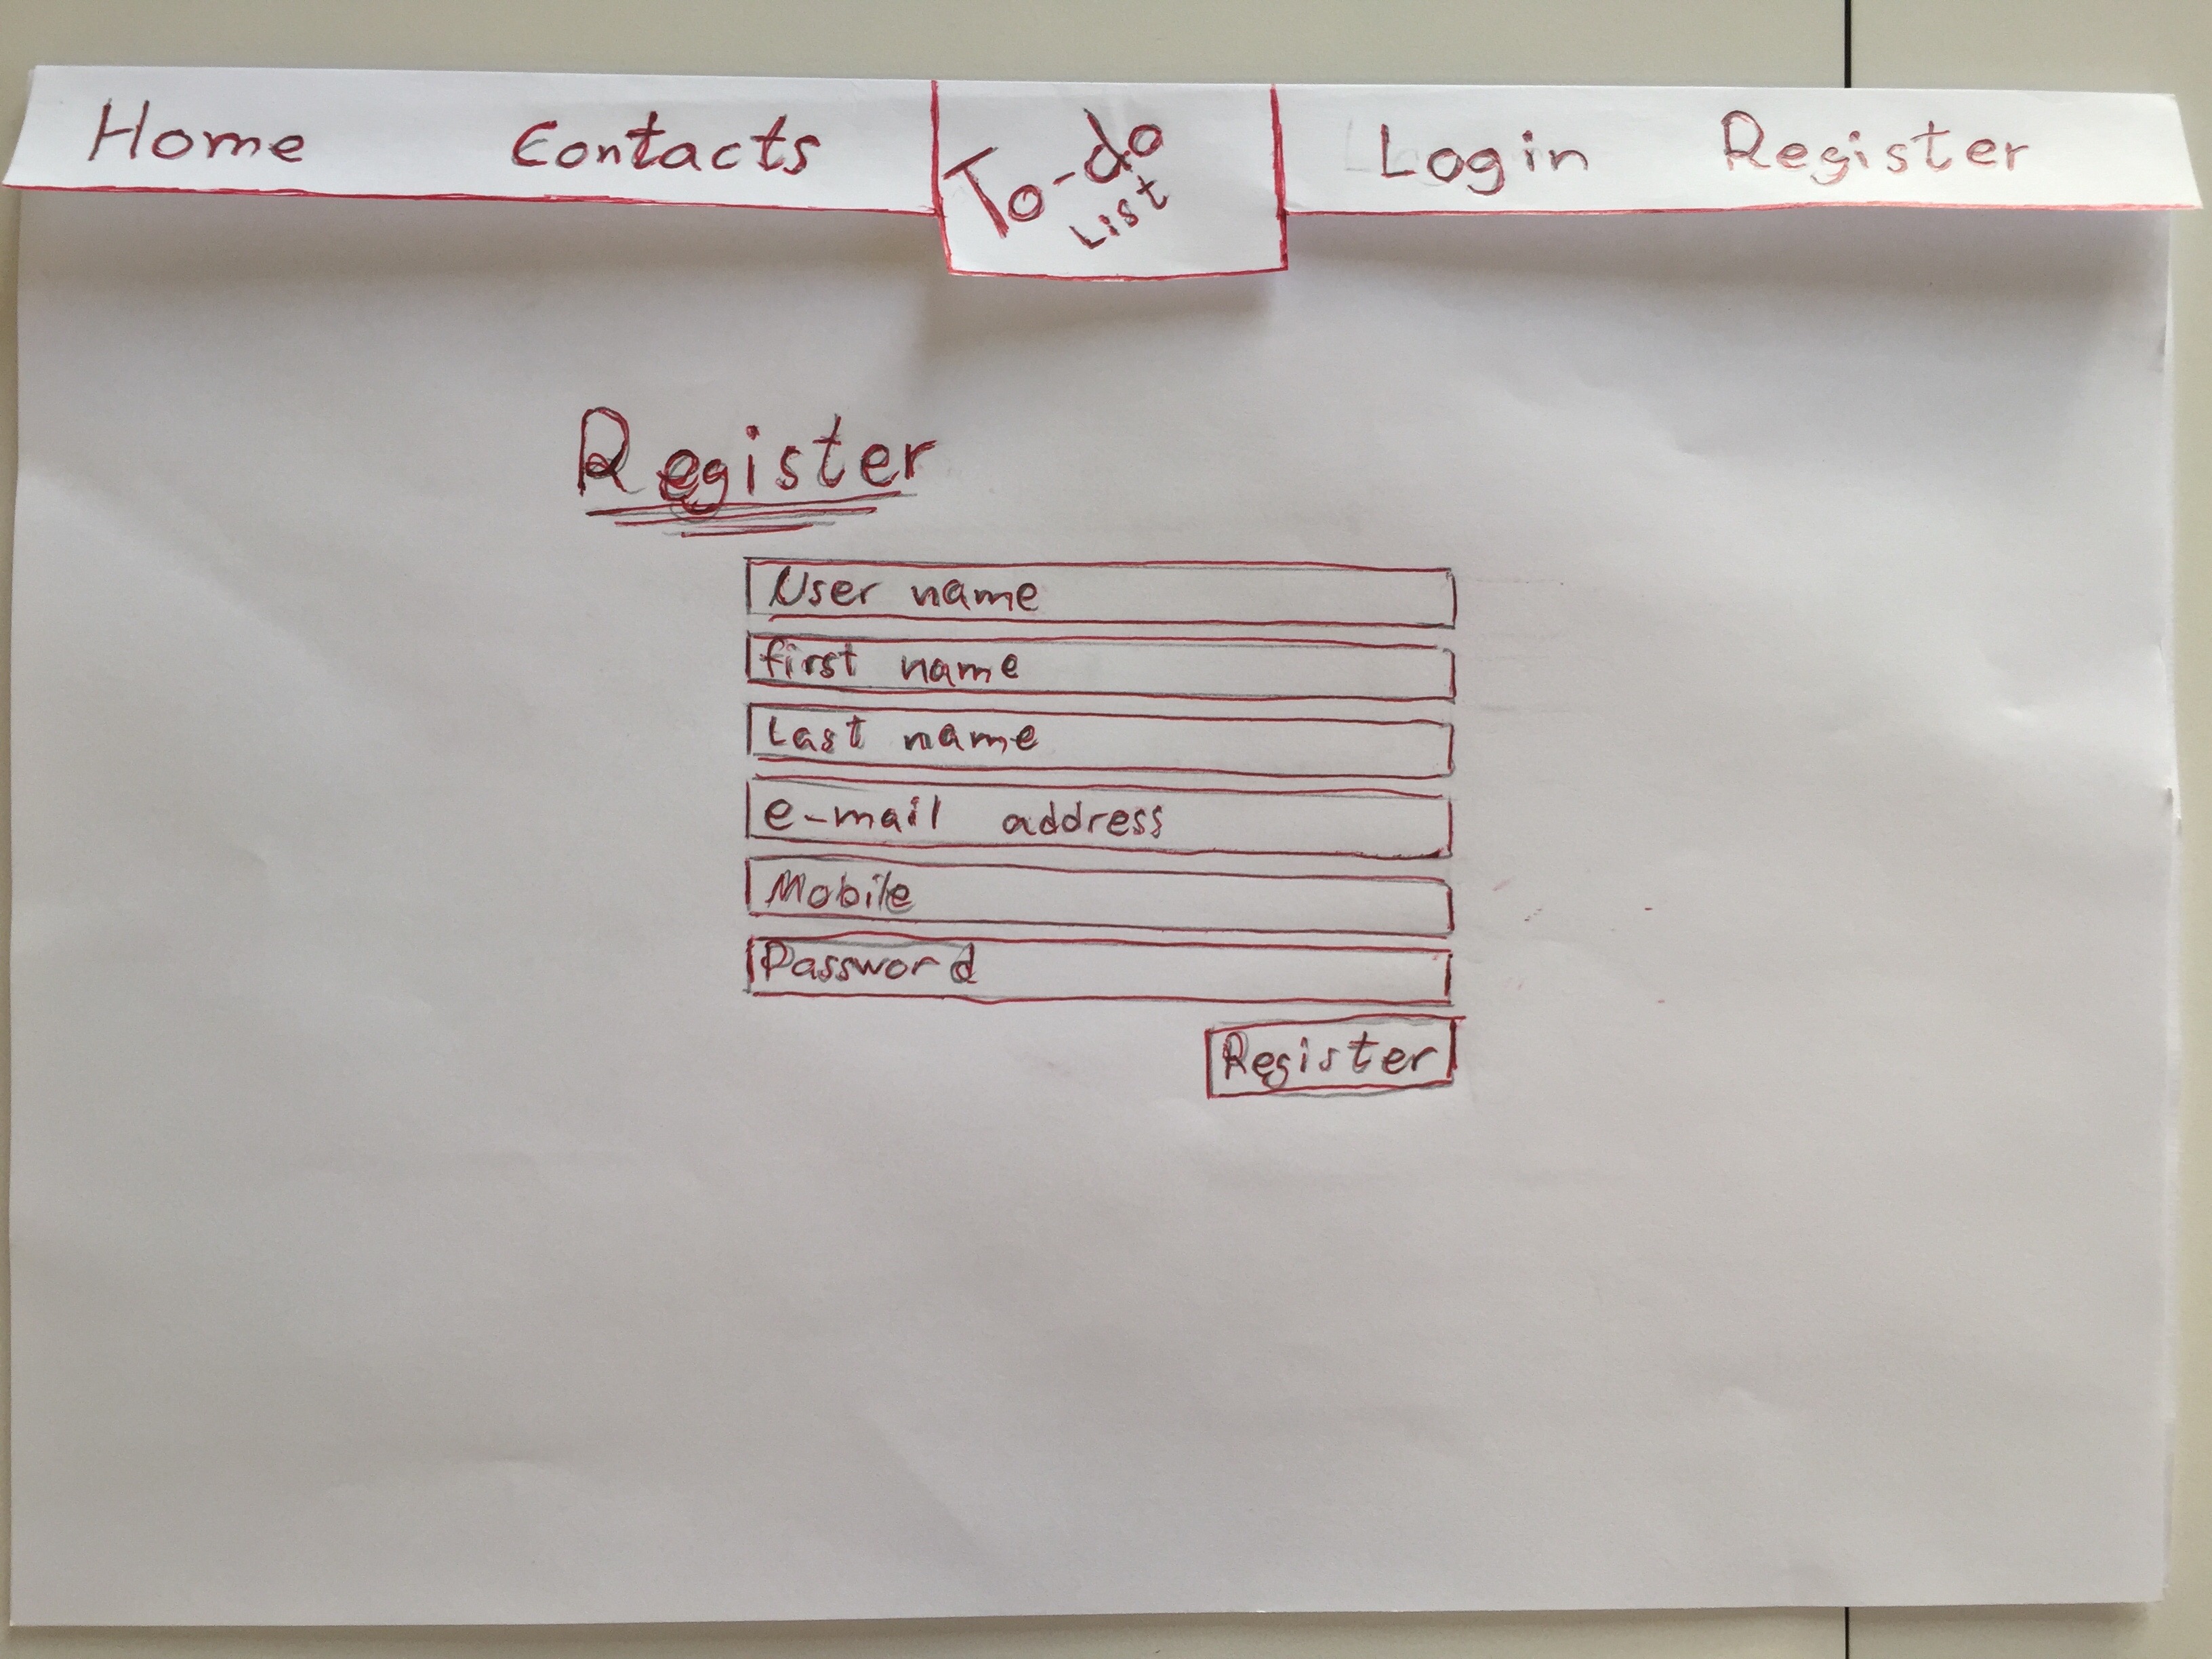 Home Contacts To-do List Login Register
Register
User name
first name
Last name
e-mail address
Mobile
Password
Register